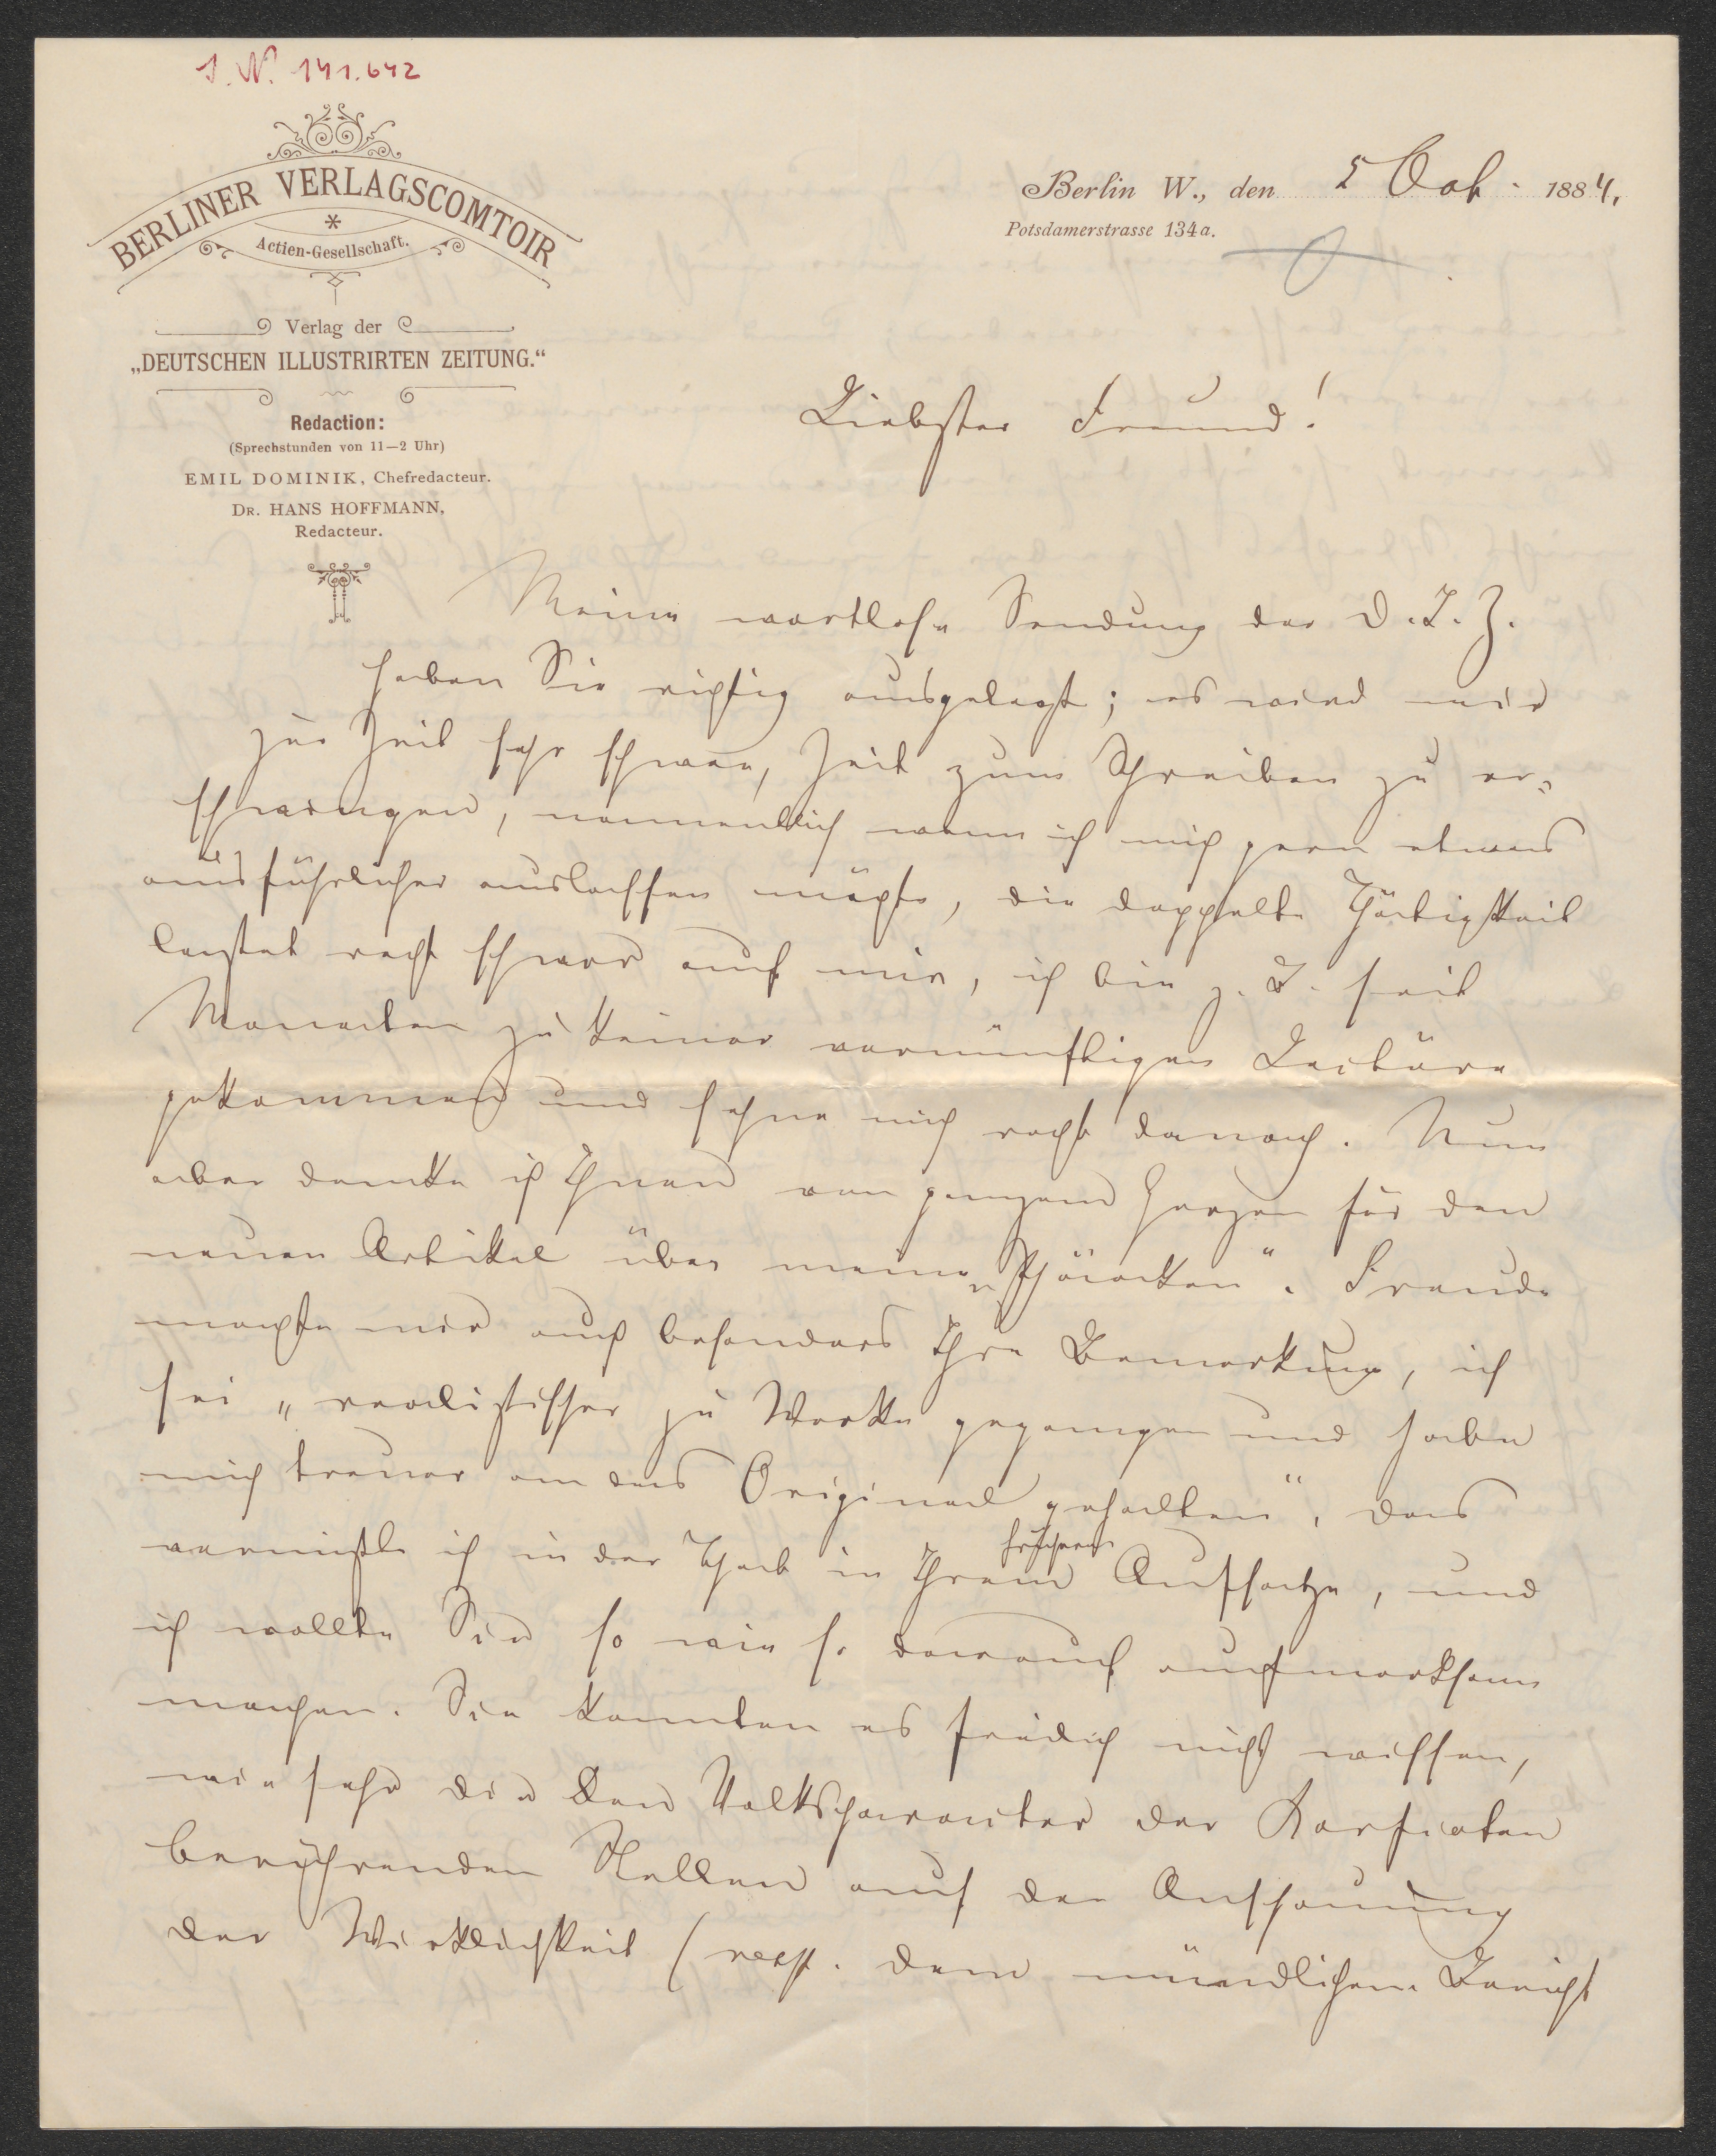 I. N. 141.642
BERLINER VERLAGSCOMTOIR
*
Actien-Gesellschaft.
Verlag der
„DEUTSCHEN ILLUSTRIRTEN ZEITUNG.“
Redaction:
(Sprechstunden von 11—2 Uhr)
EMIL DOMINIK, Chefredacteur.
DR. HANS HOFFMANN,
Redacteur.
Berlin W., den 5 Oct. 1884.
Potsdamerstrasse 134a.
Liebster Freund!
Meine wortlose Sendung der D. I. Z.
haben Sie richtig ausgelegt; es wird mir
zur Zeit sehr schwer, Zeit zum Schreiben zu er-
schwingen, namentlich wenn ich mich gern etwas
ausführlicher auslassen möchte, die doppelte Thätigkeit
lastet recht schwer auf mir, ich bin z. B. seit
Monaten zu keiner vernünftigen Lectüre
gekommen und sehne mich recht danach. Nun
aber danke ich Ihnen von ganzem Herzen für den
neuen Artikel über meine „Phäaken“. Freude
machte mir auch besonders Ihre Bemerkung, ich
sei „realistischer zu Werke gegangen und habe
mich treuer an das Original gehalten“, das
vermißte ich in der That in Ihrem früheren Aufsatze, und
ich wollte Sie so wie so darauf aufmerksam
machen. Sie konnten es freilich nicht wissen,
wie sehr die den Volkscharakter der Korfioten
berührenden Stellen auf der Anschauung
der Wirklichkeit (resp. dem mündlichen Bericht